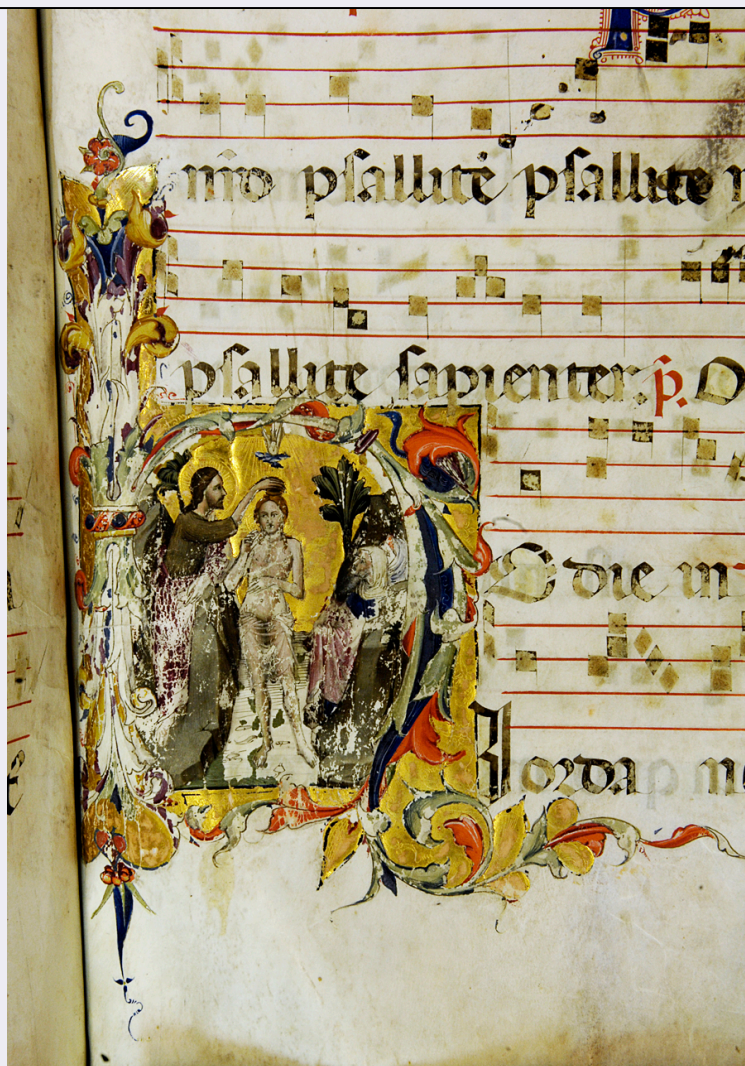 nr̄o psallite psallite
psallite sapienter. p̄. O
Hodie in
Iorda ne